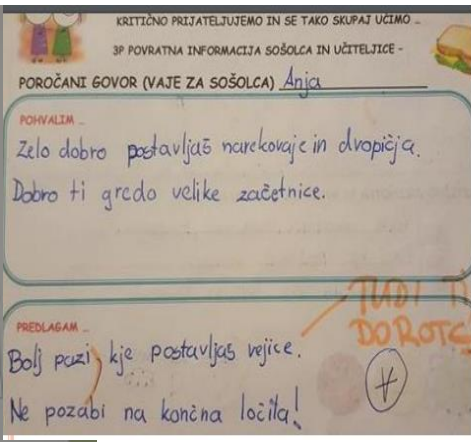 KRITIČNO PRIJATELJUJEMO IN SE TAKO SKUPAJ UČIMO ...
3P POVRATNA INFORMACIJA SOŠOLCA IN UČITELJICE -
POROČANI GOVOR (VAJE ZA SOŠOLCA) Anja
POHVALIM ...
Zelo dobro postavljaš narekovaje in dvopičja.
Dobro ti gredo velike začetnice.
TUDI TI
DOROTEJ
PREDLAGAM ...
Bolj pazi, kje postavljaš vejice.
Ne pozabi na končna ločila!